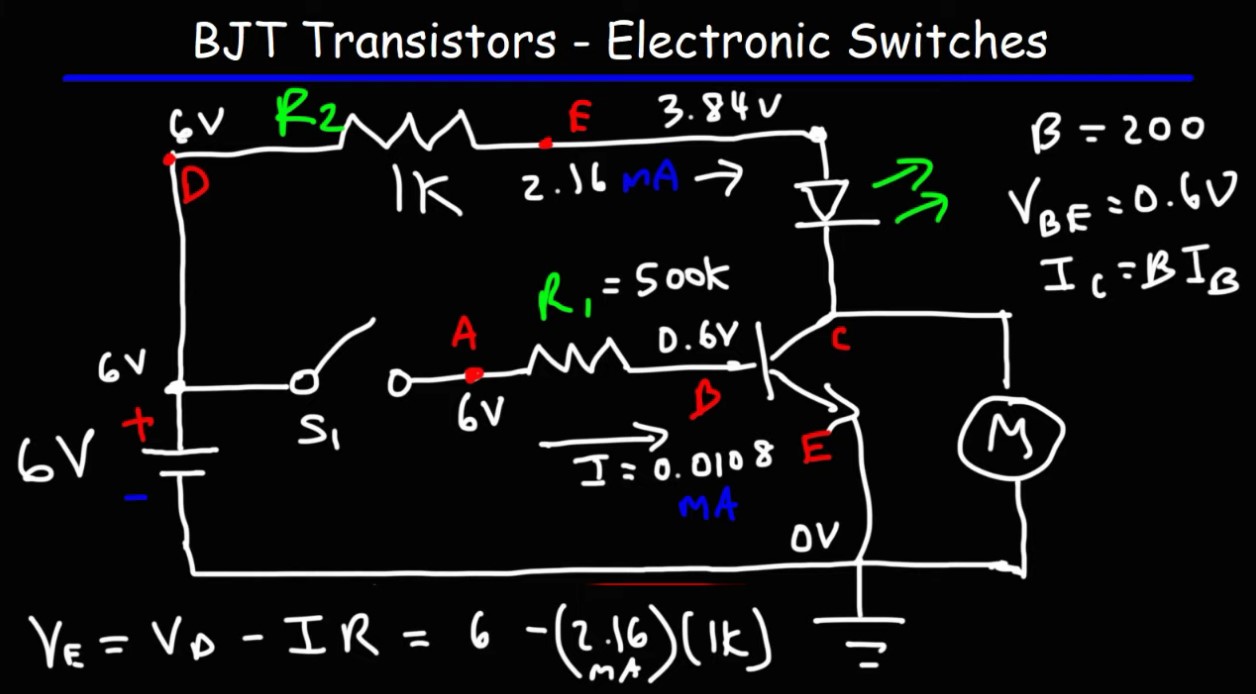 BJT Transistors - Electronic Switches
6V R2 E 3.84V
D 1K 2.16 mA →
β = 200
VBE = 0.6V
IC = βIB
R1 = 500k
A 0.6V C
6V 6V B
S1 E M
+
6V
-
I = 0.0108
mA
0V
VE = VD - IR = 6 - (2.16 mA)(1K)